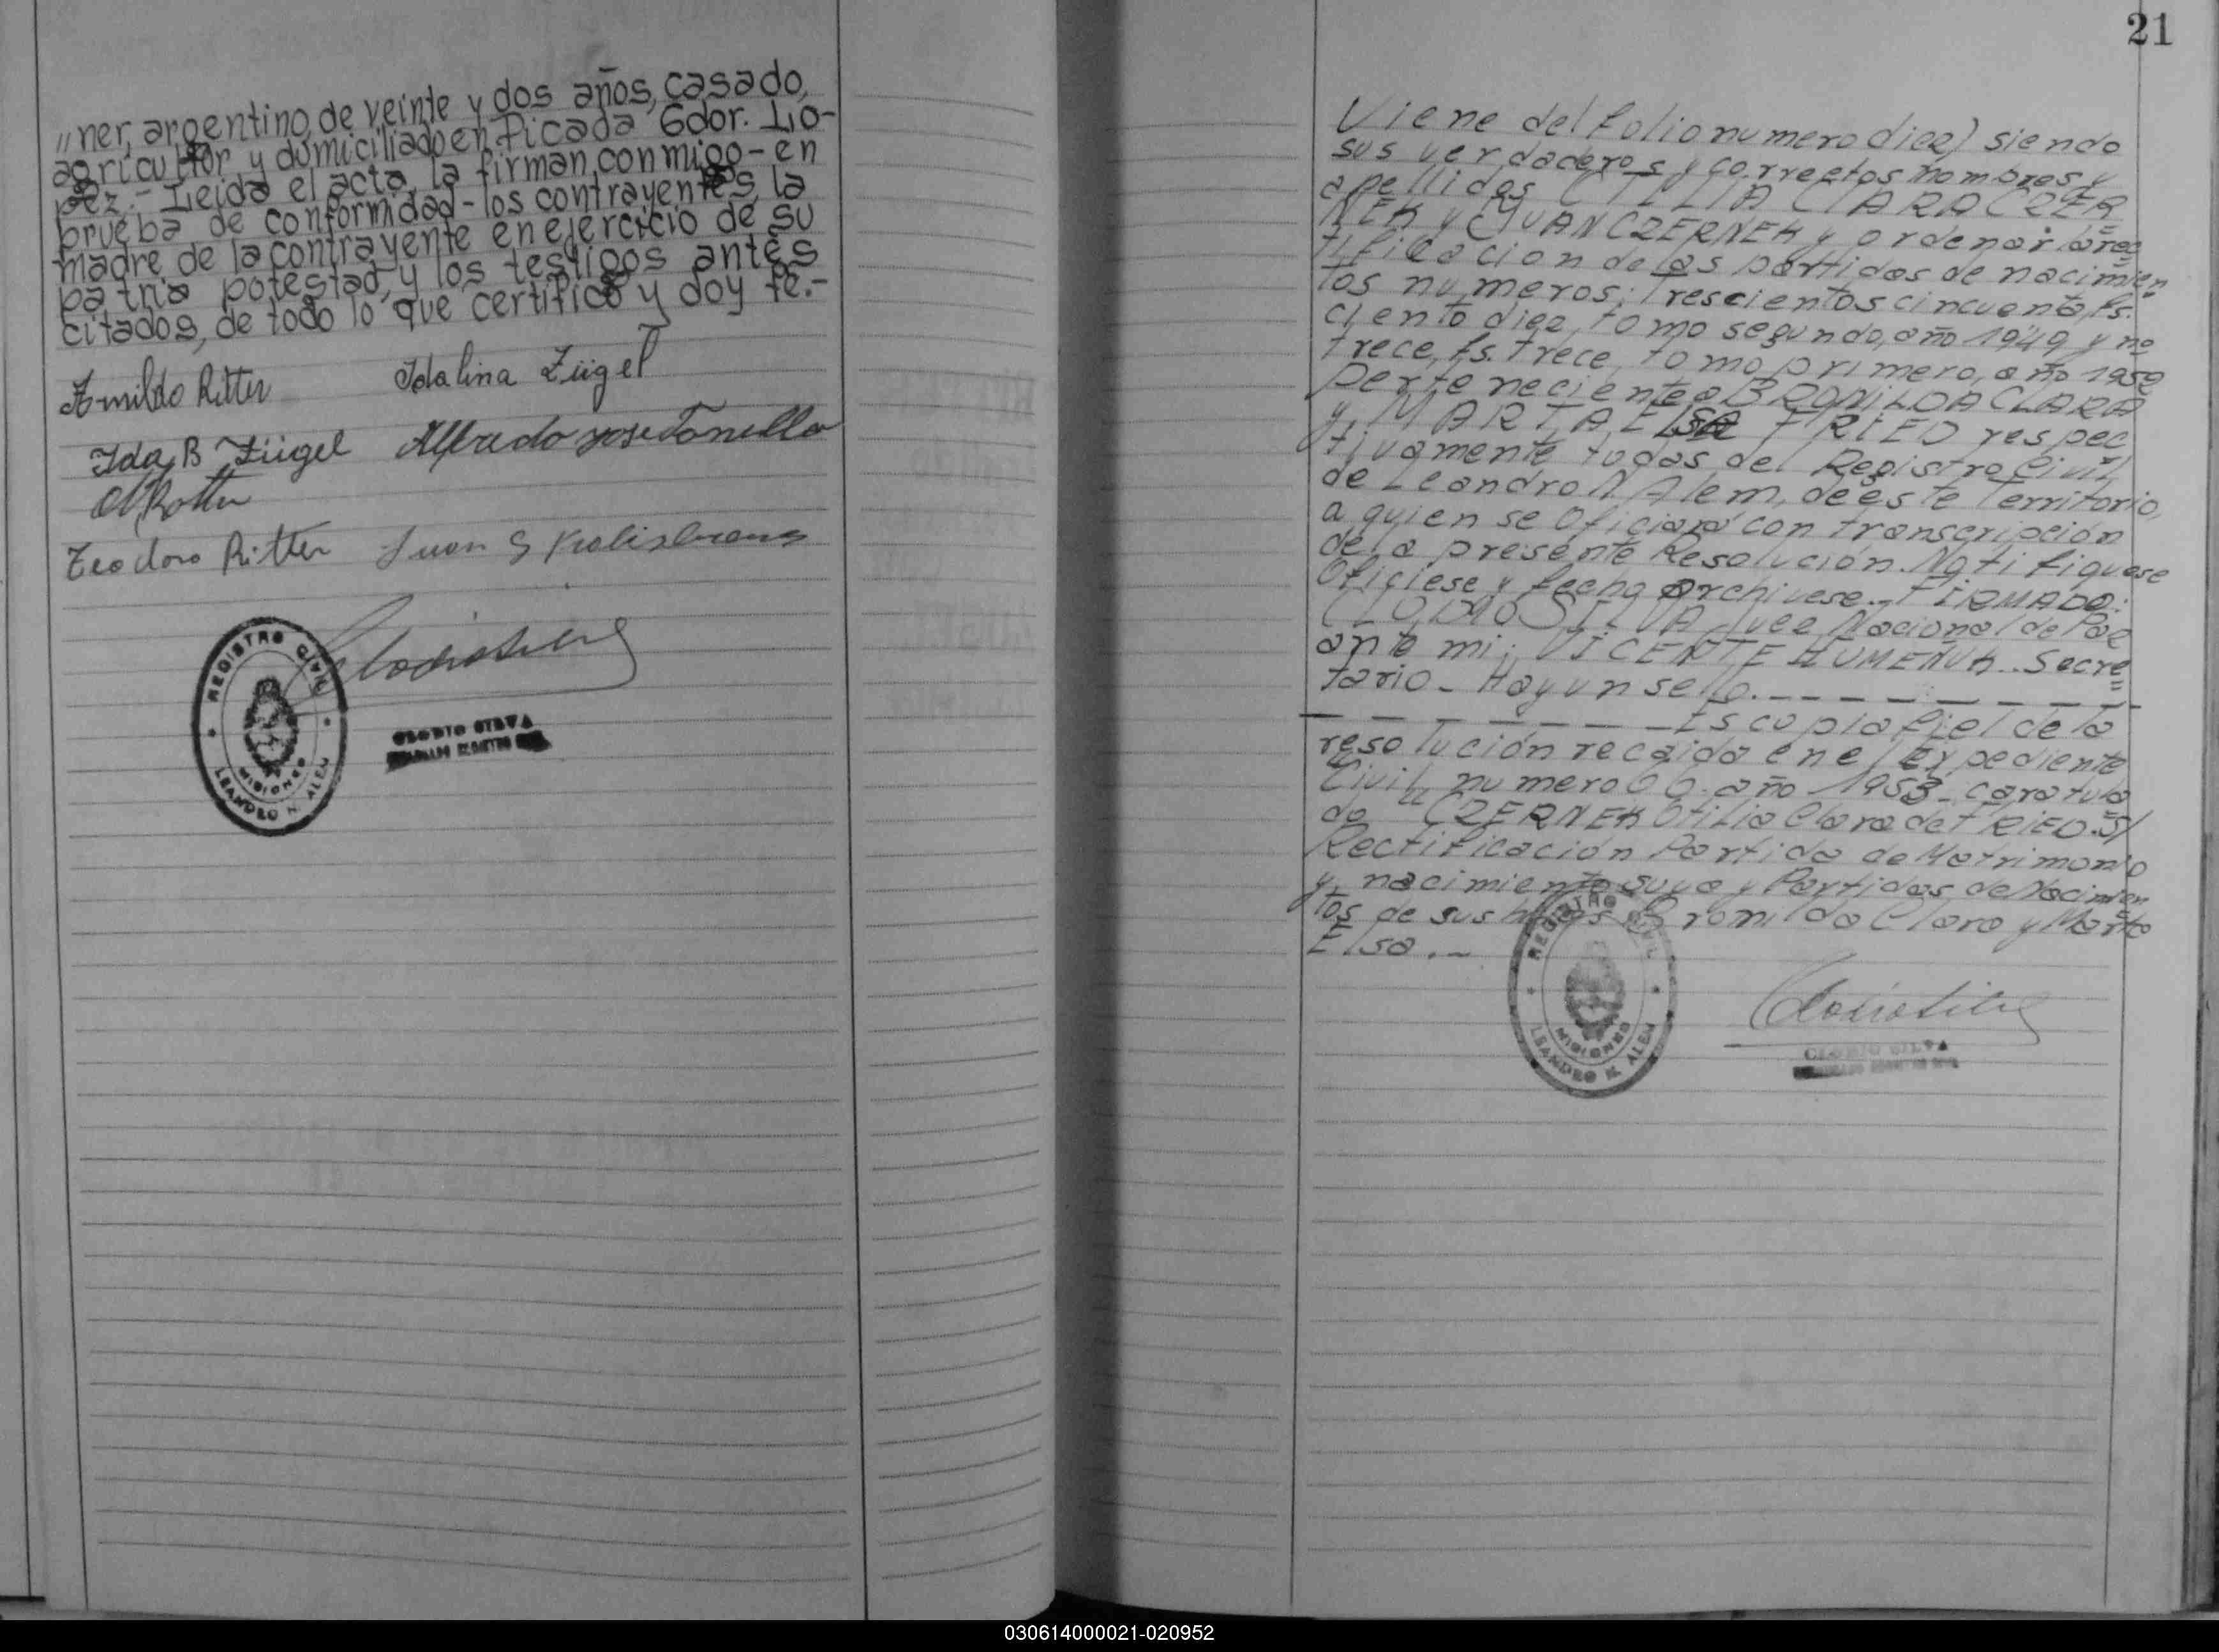 „ner, argentino, de veinte y dos años, casado,
agricultor y domiciliado en Picada Gdor. Ló-
pez.- Leida el acta, la firman conmigo - en
prueba de conformidad - los contrayentes, la
madre de la contrayente en ejercicio de su
patria potestad, y los testigos antes
citados, de todo lo que certifico y doy fe.-
Armildo Ritter Idalina Zügel
Ida B Zügel Alfredo Jose Tonella
Teodoro Ritter Juan
REGISTRO CIVIL
MISIONES
LEANDRO N. ALEM
CLODIO SILVA
21
Viene del folio numero diez) siendo
sus verdaderos y correctos nombres y
apellidos OTILIA CLARA CZER
NEK y JUAN CZERNEK y ordenar la rec
tificacion de las partidas de nacimien
tos numeros: Trescientos cincuenta, fs.
ciento diez, tomo segundo, año 1949 y no
trece, fs. trece, tomo primero, año 1952
perteneciente a BROMILDA CLARA
y MARTA ELSA FRIED respec
tivamente todas del Registro Civil
de Leandro N Alem, de este Territorio,
a quien se oficiará con transcripción
de la presente Resolución. Notifiquese
Oficiese y fecho archivese.- FIRMADO:
CLODIO SILVA Juez Nacional de Paz
ante mi: VICENTE HUMENUK.. Secre
tario - Hay un sello. - - - - - - -
- - - - - - - Es copia fiel de la
resolución recaida en el Expediente
Civil numero 66 - año 1953 - caratula
do "CZERNEK Otilia Clara de FRIED. S/
Rectificación Partida de Matrimonio
y nacimiento suya y Partidas de Nacimien
tos de sus hijas Bromilda Clara y Marta
Elsa.-
REGISTRO CIVIL
MISIONES
LEANDRO N. ALEM
CLODIO SILVA
030614000021-020952